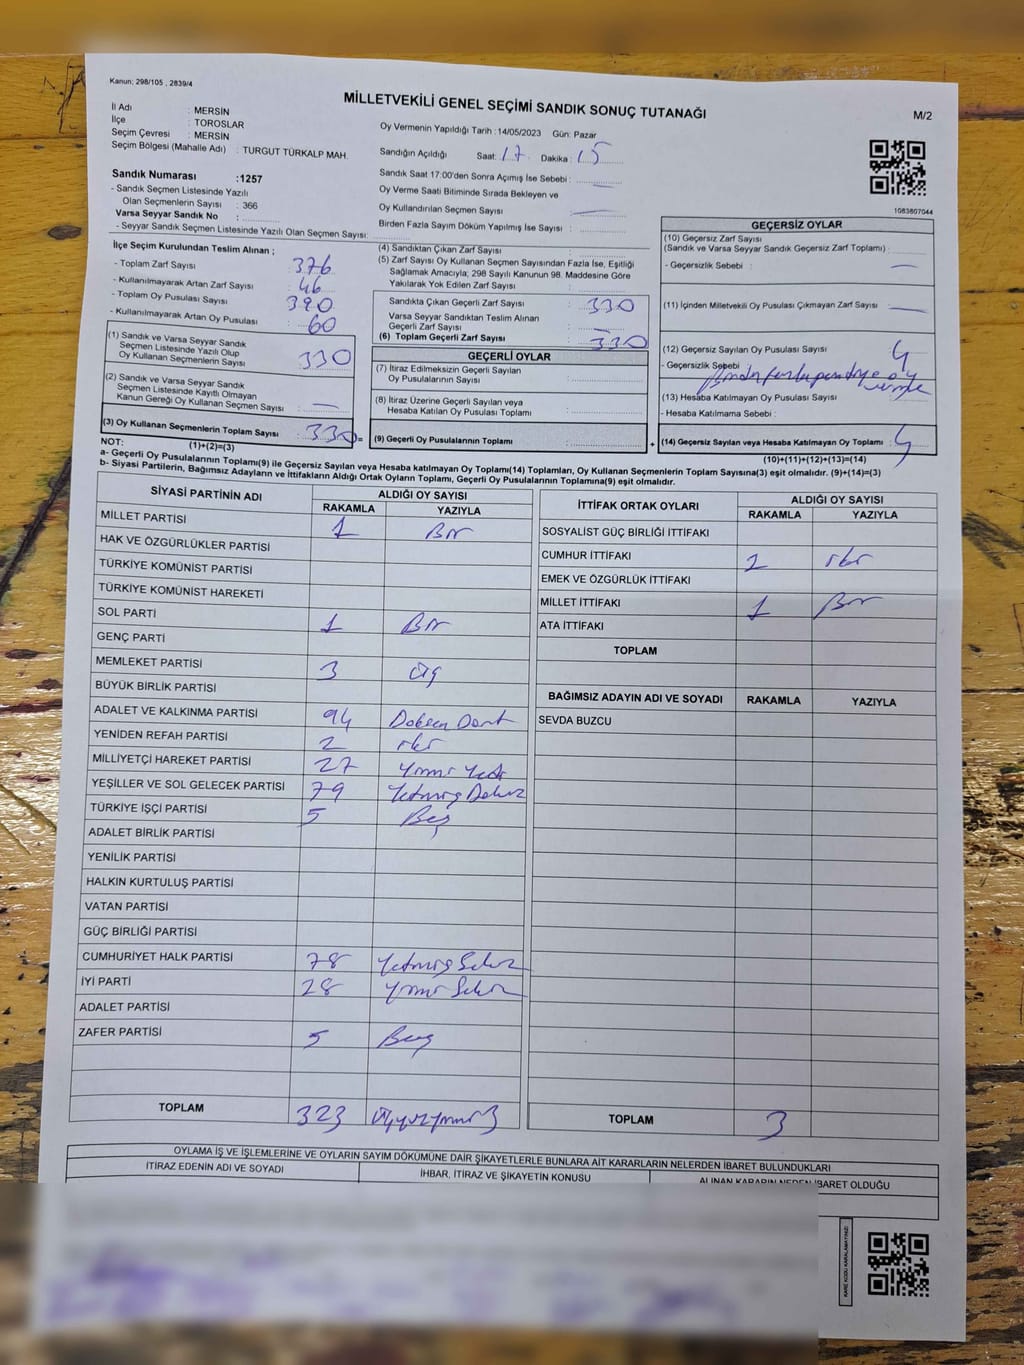 Kanun; 298/105 , 2839/4
MİLLETVEKİLİ GENEL SEÇİMİ SANDIK SONUÇ TUTANAĞI
M/2
İl Adı : MERSİN
İlçe : TOROSLAR
Seçim Çevresi : MERSİN
Seçim Bölgesi (Mahalle Adı) : TURGUT TÜRKALP MAH.
Oy Vermenin Yapıldığı Tarih : 14/05/2023 Gün: Pazar
Sandığın Açıldığı Saat: 17 Dakika : 15
Sandık Saat 17:00'den Sonra Açımış İse Sebebi : —
Oy Verme Saati Bitiminde Sırada Bekleyen ve
Oy Kullandırılan Seçmen Sayısı : —
Birden Fazla Sayım Döküm Yapılmış İse Sayısı :
1083807044
Sandık Numarası : 1257
- Sandık Seçmen Listesinde Yazılı
Olan Seçmenlerin Sayısı : 366
Varsa Seyyar Sandık No :
- Seyyar Sandık Seçmen Listesinde Yazılı Olan Seçmen Sayısı:
İlçe Seçim Kurulundan Teslim Alınan ;
- Toplam Zarf Sayısı : 376
- Kullanılmayarak Artan Zarf Sayısı : 46
- Toplam Oy Pusulası Sayısı : 390
- Kullanılmayarak Artan Oy Pusulası : 60
(1) Sandık ve Varsa Seyyar Sandık
Seçmen Listesinde Yazılı Olup
Oy Kullanan Seçmenlerin Sayısı : 330
(2) Sandık ve Varsa Seyyar Sandık
Seçmen Listesinde Kayıtlı Olmayan
Kanun Gereği Oy Kullanan Seçmen Sayısı : —
(3) Oy Kullanan Seçmenlerin Toplam Sayısı : 330 =
(1)+(2)=(3)
(4) Sandıktan Çıkan Zarf Sayısı :
(5) Zarf Sayısı Oy Kullanan Seçmen Sayısından Fazla İse, Eşitliği
Sağlamak Amacıyla; 298 Sayılı Kanunun 98. Maddesine Göre
Yakılarak Yok Edilen Zarf Sayısı :
Sandıkta Çıkan Geçerli Zarf Sayısı : 330
Varsa Seyyar Sandıktan Teslim Alınan
Geçerli Zarf Sayısı : —
(6) Toplam Geçerli Zarf Sayısı : 330
GEÇERLİ OYLAR
(7) İtiraz Edilmeksizin Geçerli Sayılan
Oy Pusulalarının Sayısı :
(8) İtiraz Üzerine Geçerli Sayılan veya
Hesaba Katılan Oy Pusulası Toplamı :
(9) Geçerli Oy Pusulalarının Toplamı : +
GEÇERSİZ OYLAR
(10) Geçersiz Zarf Sayısı
(Sandık ve Varsa Seyyar Sandık Geçersiz Zarf Toplamı) :
- Geçersizlik Sebebi : —
(11) İçinden Milletvekili Oy Pusulası Çıkmayan Zarf Sayısı : —
(12) Geçersiz Sayılan Oy Pusulası Sayısı : 4
- Geçersizlik Sebebi : Birden fazla partiye oy
verme
(13) Hesaba Katılmayan Oy Pusulası Sayısı :
- Hesaba Katılmama Sebebi :
(14) Geçersiz Sayılan veya Hesaba Katılmayan Oy Toplamı : 4
(10)+(11)+(12)+(13)=(14)
NOT:
a- Geçerli Oy Pusulalarının Toplamı(9) ile Geçersiz Sayılan veya Hesaba katılmayan Oy Toplamı(14) Toplamları, Oy Kullanan Seçmenlerin Toplam Sayısına(3) eşit olmalıdır. (9)+(14)=(3)
b- Siyasi Partilerin, Bağımsız Adayların ve İttifakların Aldığı Ortak Oyların Toplamı, Geçerli Oy Pusulalarının Toplamına(9) eşit olmalıdır.
SİYASİ PARTİNİN ADI ALDIĞI OY SAYISI
RAKAMLA YAZIYLA
MİLLET PARTİSİ 1 Bir
HAK VE ÖZGÜRLÜKLER PARTİSİ
TÜRKİYE KOMÜNİST PARTİSİ
TÜRKİYE KOMÜNİST HAREKETİ
SOL PARTİ 1 Bir
GENÇ PARTİ
MEMLEKET PARTİSİ 3 Üç
BÜYÜK BİRLİK PARTİSİ
ADALET VE KALKINMA PARTİSİ 94 Doksan Dört
YENİDEN REFAH PARTİSİ 2 iki
MİLLİYETÇİ HAREKET PARTİSİ 27 Yirmi Yedi
YEŞİLLER VE SOL GELECEK PARTİSİ 79 Yetmiş Dokuz
TÜRKİYE İŞÇİ PARTİSİ 5 Beş
ADALET BİRLİK PARTİSİ
YENİLİK PARTİSİ
HALKIN KURTULUŞ PARTİSİ
VATAN PARTİSİ
GÜÇ BİRLİĞİ PARTİSİ
CUMHURİYET HALK PARTİSİ 78 Yetmiş Sekiz
İYİ PARTİ 28 Yirmi Sekiz
ADALET PARTİSİ
ZAFER PARTİSİ 5 Beş
TOPLAM 323 Üçyüzyirmi 3
İTTİFAK ORTAK OYLARI ALDIĞI OY SAYISI
RAKAMLA YAZIYLA
SOSYALİST GÜÇ BİRLİĞİ İTTİFAKI
CUMHUR İTTİFAKI 2 iki
EMEK VE ÖZGÜRLÜK İTTİFAKI
MİLLET İTTİFAKI 1 Bir
ATA İTTİFAKI
TOPLAM
BAĞIMSIZ ADAYIN ADI VE SOYADI RAKAMLA YAZIYLA
SEVDA BUZCU
TOPLAM 3
OYLAMA İŞ VE İŞLEMLERİNE VE OYLARIN SAYIM DÖKÜMÜNE DAİR ŞİKAYETLERLE BUNLARA AİT KARARLARIN NELERDEN İBARET BULUNDUKLARI
İTİRAZ EDENİN ADI VE SOYADI İHBAR, İTİRAZ VE ŞİKAYETİN KONUSU ALINAN KARARIN NEDEN İBARET OLDUĞU
KARE KODU KARALAMAYINIZ!